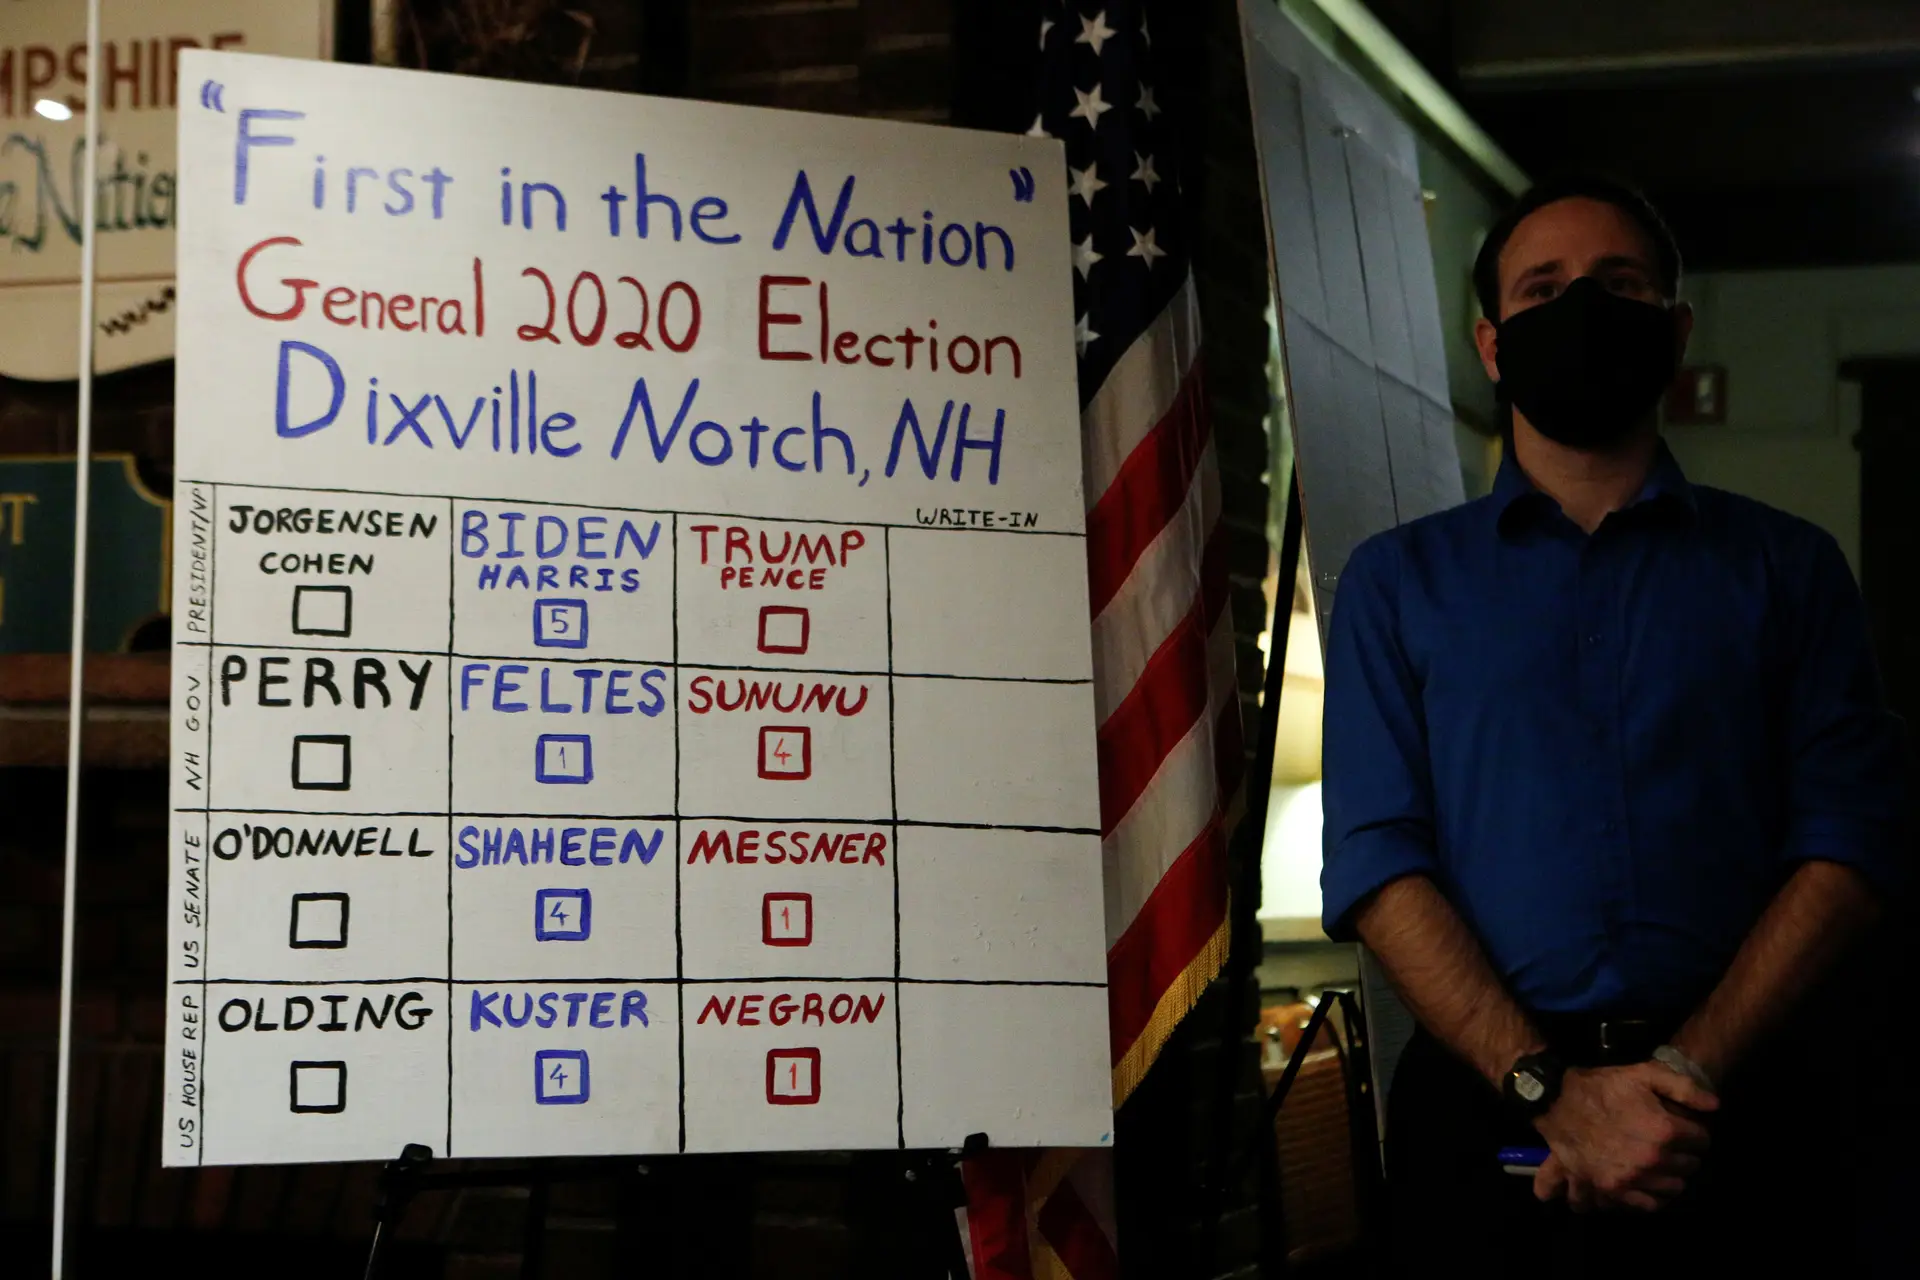 "First in the Nation"
General 2020 Election
Dixville Notch, NH
WRITE-IN
PRESIDENT/VP
JORGENSEN
COHEN
BIDEN
HARRIS
5
TRUMP
PENCE
NH GOV
PERRY
FELTES
1
SUNUNU
4
US SENATE
O'DONNELL
SHAHEEN
4
MESSNER
1
US HOUSE REP
OLDING
KUSTER
4
NEGRON
1